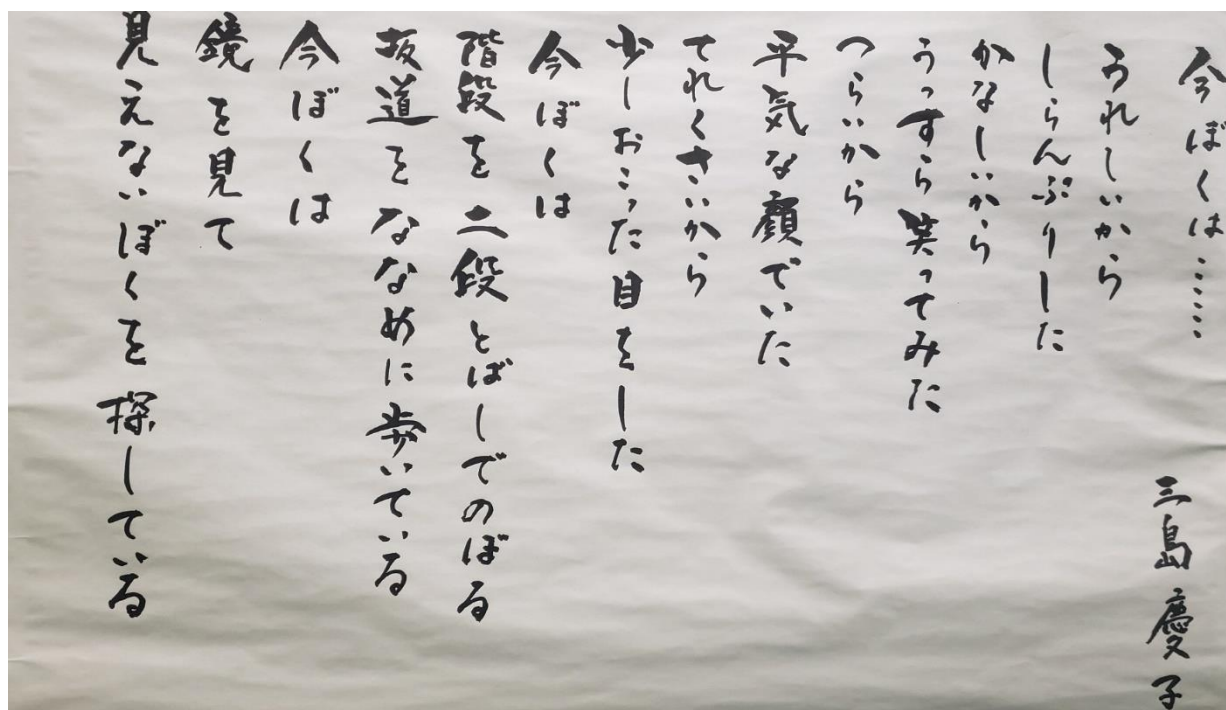 今ぼくは……
三島慶子
うれしいから
しらんぷりした
かなしいから
うっすら笑ってみた
つらいから
平気な顔でいた
てれくさいから
少しおこった目をした
今ぼくは
階段を二段とばしでのぼる
坂道をななめに歩いている
今ぼくは
鏡を見て
見えないぼくを探している